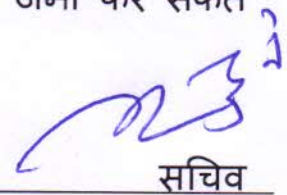 जमा कर सकते
सचिव